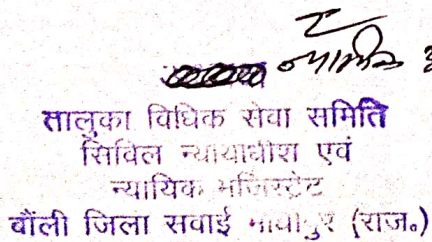 न्यायिक
तालुका विधिक सेवा समिति
सिविल न्यायाधीश एवं
न्यायिक मजिस्ट्रेट
बौंली जिला सवाई माधोपुर (राज०)